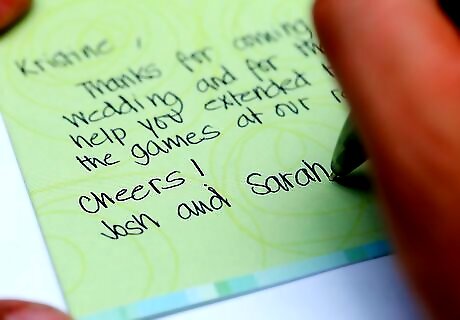 Kristine,
Thanks for coming
wedding and for
help you extended
the games at our
Cheers!
Josh and Sarah